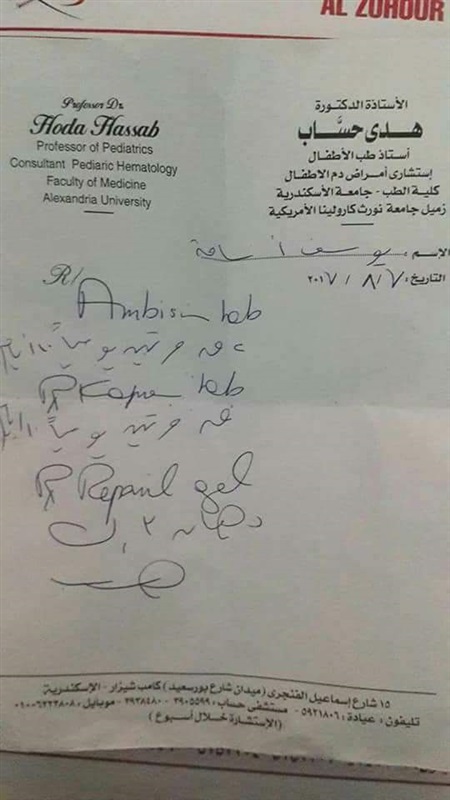 AL ZOHOUR
Professor Dr.
Hoda Hassab
Professor of Pediatrics
Consultant Pediaric Hematology
Faculty of Medicine
Alexandria University
الأستاذة الدكتورة
هدى حسَّاب
أستاذ طب الأطفال
إستشارى أمراض دم الاطفال
كلية الطب - جامعة الأسكندرية
زميل جامعة نورث كارولينا الأمريكية
الإسم : يوسف أسامة
التاريخ : ٧ / ٨ / ٢٠١٧
R/
Ambisin tab
مرتين يومياً
R/ tab
مرتين يومياً
R/ Reparil gel
دهان
١٥ شارع إسماعيل الفنجرى (ميدان شارع بورسعيد) كامب شيزار - الإسكندرية
تليفون : عيادة : ٥٩٢١٨٠٦ - مستشفى حساب : ٣٩٠٥٥٩٩ - ٣٩٣٨٤٨٠ - موبايل : ٠١٠٠٦٢٢٣٨٠٨
(الإستشارة خلال أسبوع)